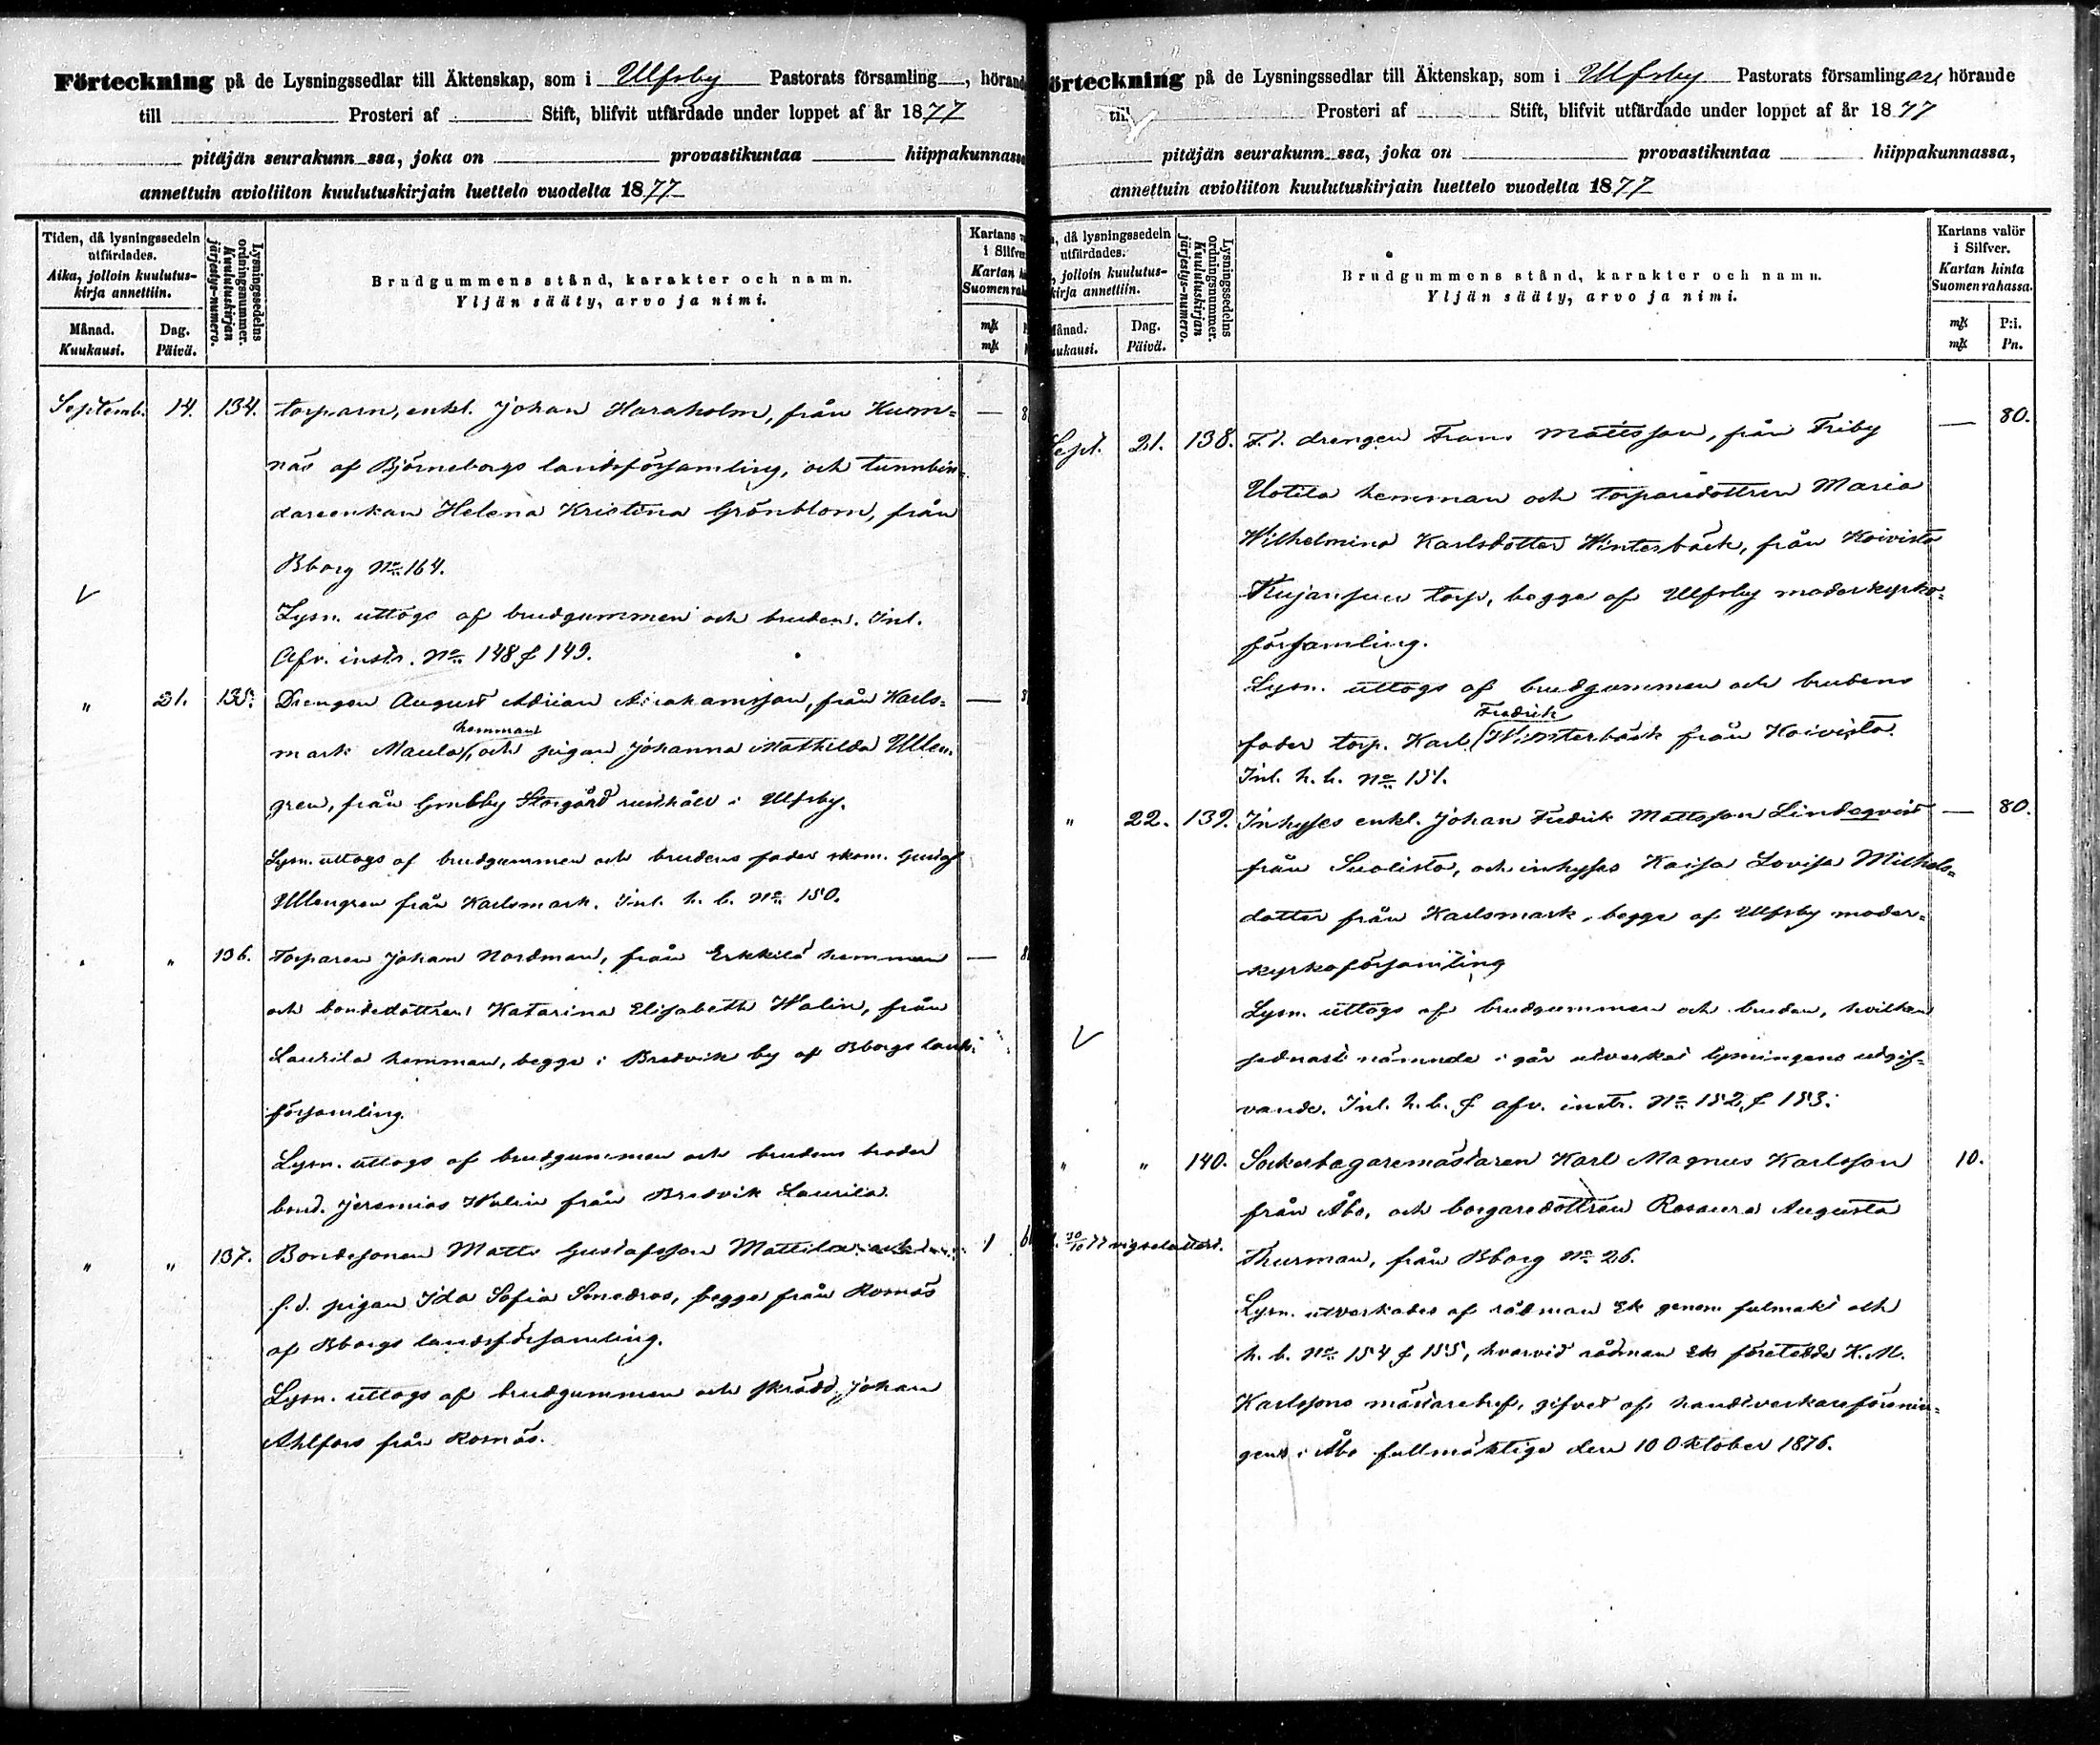 Förteckning på de Lysningssedlar till Äktenskap, som i Ulfsby Pastorats församling, hörande
till Prosteri af Stift, blifvit utfärdade under loppet af år 1877
pitäjän seurakunn ssa, joka on provastikuntaa hiippakunnassa
annettuin avioliiton kuulutuskirjain luettelo vuodelta 1877
Tiden, då lysningssedeln utfärdades.
Aika, jolloin kuulutus-
kirja annettiin.
Månad. Kuukausi.
Dag. Päivä.
Lysningssedelns ordningsnummer.
Kuulutuskirjan järjestys-numero.
Brudgummens stånd, karakter och namn.
Yljän sääty, arvo ja nimi.
Kartans
i Silfver
Kartan
Suomen
mk
mk
Septemb. 14. 134. torparn, enkl. Johan Haraholm, från Kum=
näs af Björneborgs landsförsamling, och tunnbin=
dareenkan Helena Kristina Grönblom, från
Bborg No 164.
Lysn. uttogs af brudgummen och bruden. Inl.
Afv. instr. No 148 & 149.
" 21. 135. Drengen August Adrian Abrahamsson, från Karls=
hemman
mark Maula, och pigan Johanna Mathilda Ullen=
gren, från Gnubby Storgård rusthåll i Ulfsby.
Lysn. uttogs af brudgummen och brudens fader skom. Gustaf
Ullengren från Karlsmark. Inl. h. b. No 150.
" " 136. Torparen Johan Nordman, från Erkkilä hemman —
och bondedottren Katarina Elisabeth Walin, från
Laurila hemman, begge i Bredvik by af Bborgs lands
församling.
Lysn. uttogs af brudgummen och brudens broder
bond. Jeremias Walin från Bredvik Laurila
" " 137. Bondesonen Matts Gustafsson Mattila och 1
f.d. pigan Ida Sofia Smedros, begge från Romsö
af Bborgs landsförsamling.
Lysn. uttogs af brudgummen och skrädd. Johan
Ahlfors från Romsö.
Förteckning på de Lysningssedlar till Äktenskap, som i Ulfsby Pastorats församlingar, hörande
till Prosteri af Stift, blifvit utfärdade under loppet af år 1877
pitäjän seurakunn ssa, joka on provastikuntaa hiippakunnassa,
annettuin avioliiton kuulutuskirjain luettelo vuodelta 1877
, då lysningssedeln utfärdades.
jolloin kuulutus-
kirja annettiin.
Månad.
Dag. Päivä.
Lysningssedelns ordningsnummer.
Kuulutuskirjan järjestys-numero.
Brudgummens stånd, karakter och namn.
Yljän sääty, arvo ja nimi.
Kartans valör
i Silfver.
Kartan hinta
Suomen rahassa.
mk P:i.
mk Pn.
Sept. 21. 138. F.d. drengen Frans Mattsson, från Friby — 80.
Uotila hemman och torparedottren Maria
Wilhelmina Karlsdotter Winterbäck, från Koivisto
Kujansuu torp, begge af Ulfsby moderkyrko=
församling.
Lysn. uttogs af brudgummen och brudens
Fredrik
fader torp. Karl Winterbäck från Koivisto
Inl. h. b. No 151.
" 22. 139. Inhyses enkl. Johan Fredrik Mattsson Lindeqvist — 80.
från Suolisto, och inhyses Kaisa Lovisa Michels=
dotter från Karlsmark, begge af Ulfsby moder=
kyrkoförsamling
Lysn. uttogs af brudgummen och bruden, hvilken
sednast nämnde i går utverkat lysningens utgif=
vande. Inl. h. b. & afv. instr. No 152 & 153.
" " 140. Sockerbagaremästaren Karl Magnus Karlsson 10.
från Åbo, och borgaredottren Rosaura Augusta
30/10 77 vigselattest.
Thurman, från Bborg No 26.
Lysn. utverkades af rådman Ek genom fulmakt och
h. b. No 154 & 155, hvarvid rådman Ek företedde K. M.
Karlssons mästarebref, gifvet af handtverkareförenin=
gens i Åbo fullmäktige den 10 Oktober 1876.